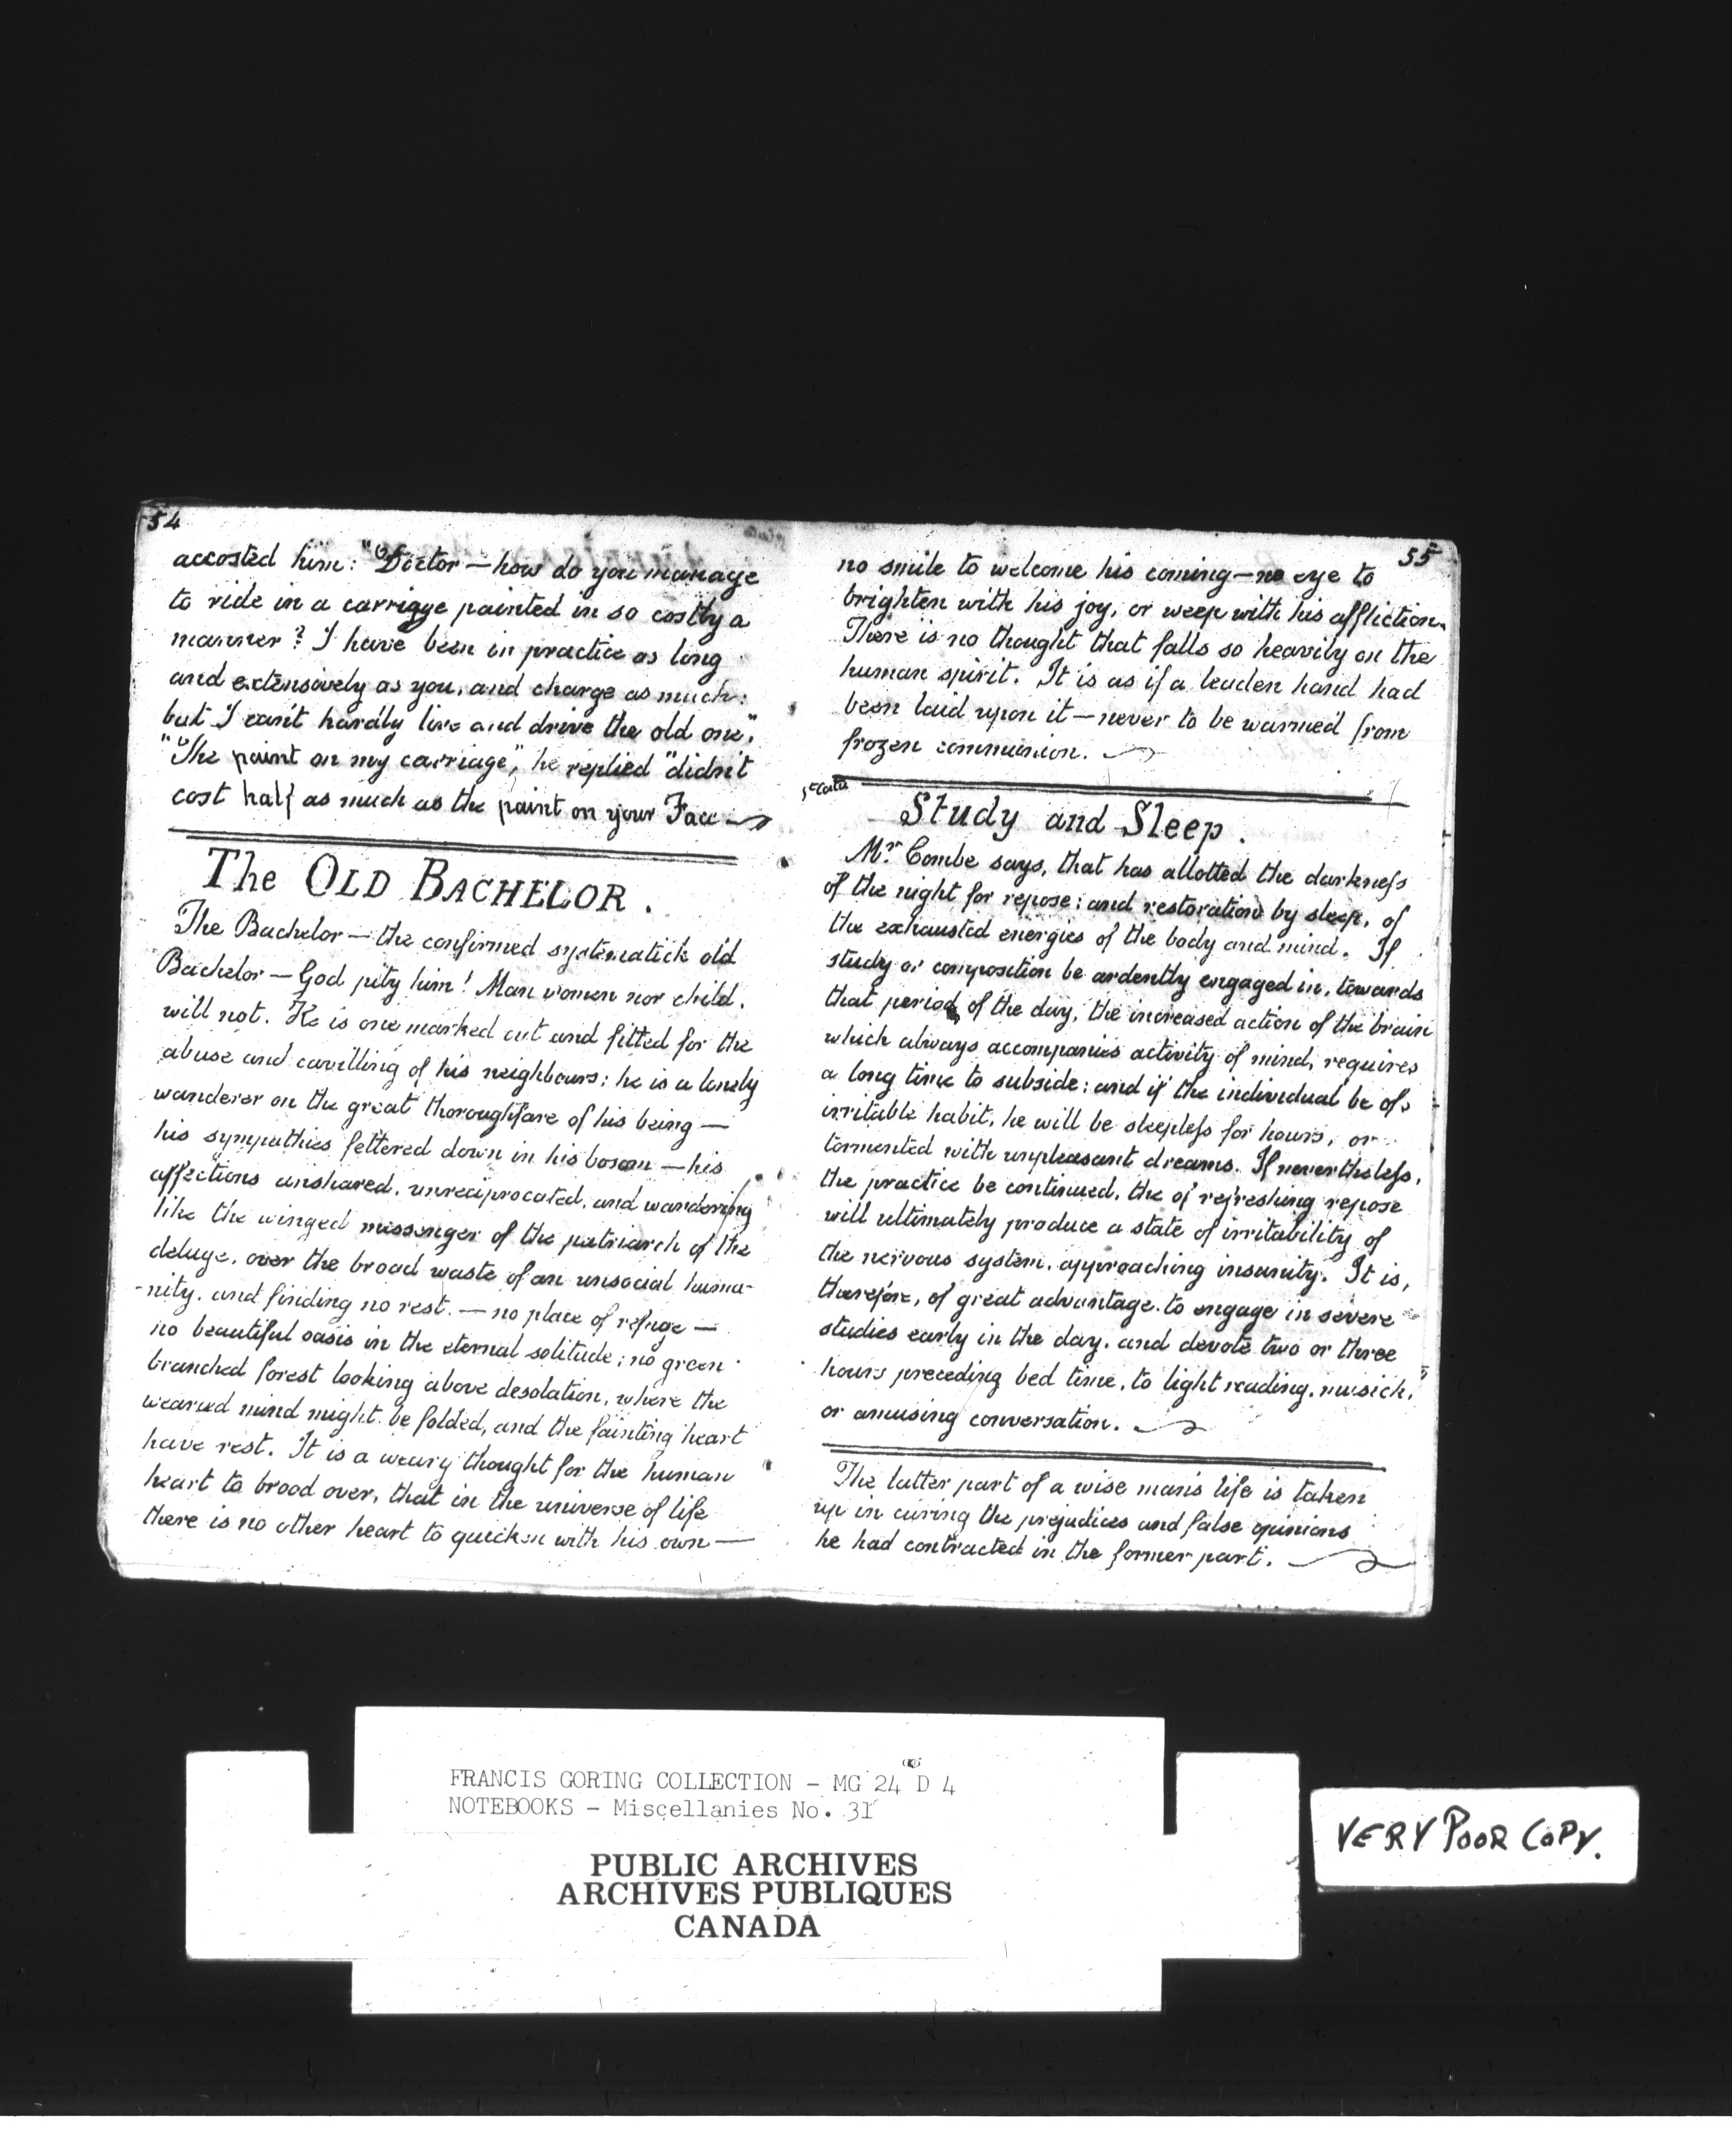 54
accosted him: "Doctor — how do you manage
to ride in a carriage painted in so costly a
manner? I have been in practice as long
and extensively as you, and charge as much:
but I can't hardly live and drive the old one".
"The paint on my carriage," he replied "didn't
cost half as much as the paint on your Face
The OLD BACHELOR.
The Bachelor — the confirmed systematick old
Bachelor — God pity him! Man women nor child.
will not. He is one marked out and fitted for the
abuse and cavilling of his neighbours: he is a lonely
wanderer on the great thoroughfare of his being —
his sympathies fettered down in his bosom — his
affections unshared, unreciprocated, and wandering
like the winged messenger of the patriarch of the
deluge, over the broad waste of an unsocial huma-
-nity, and finding no rest. — no place of refuge —
no beautiful oasis in the eternal solitude; no green
branched forest looking above desolation, where the
wearied mind might be folded, and the fainting heart
have rest. It is a weary thought for the human
heart to brood over, that in the universe of life
there is no other heart to quicken with his own —
55
no smile to welcome his coming — no eye to
brighten with his joy, or weep with his affliction.
There is no thought that falls so heavily on the
human spirit. It is as if a leaden hand had
been laid upon it — never to be warmed from
frozen communion.
Study and Sleep.
Mr. Combe says, that has allotted the darkness
of the night for repose; and restoration by sleep, of
the exhausted energies of the body and mind. If
study or composition be ardently engaged in, towards
that period of the day, the increased action of the brain
which always accompanies activity of mind, requires
a long time to subside: and if the individual be of
irritable habit, he will be sleepless for hours, or
tormented with unpleasant dreams. If nevertheless,
the practice be continued, the of refreshing repose
will ultimately produce a state of irritability of
the nervous system, approaching insanity. It is,
therefore, of great advantage to engage in severe
studies early in the day, and devote two or three
hours preceding bed time, to light reading, musick,
or amusing conversation.
The latter part of a wise man's life is taken
up in curing the prejudices and false opinions
he had contracted in the former part.
FRANCIS GORING COLLECTION - MG 24 D 4
NOTEBOOKS - Miscellanies No. 31
PUBLIC ARCHIVES
ARCHIVES PUBLIQUES
CANADA
VERY POOR COPY.